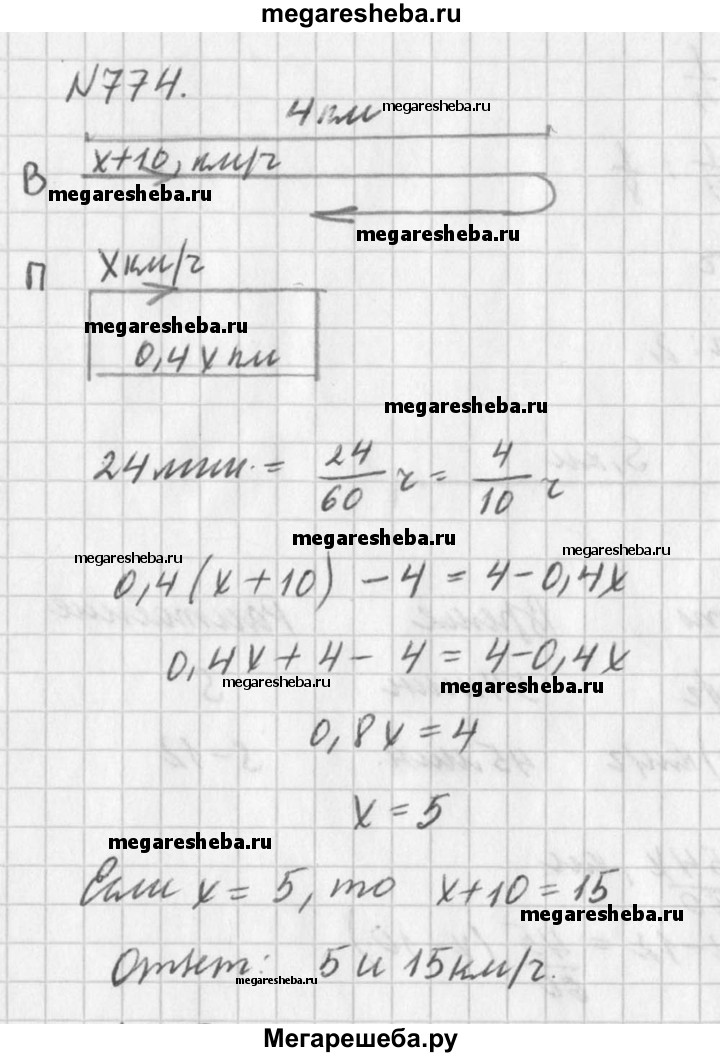 megaresheba.ru
N774.
4 км
megaresheba.ru
x+10, км/ч
В
megaresheba.ru
megaresheba.ru
x км/ч
П
megaresheba.ru
0,4x км
megaresheba.ru
24 мин. = 24/60 ч = 4/10 ч
megaresheba.ru
megaresheba.ru
megaresheba.ru
0,4(x+10) - 4 = 4 - 0,4x
0,4x + 4 - 4 = 4 - 0,4x
megaresheba.ru
megaresheba.ru
0,8x = 4
x = 5
megaresheba.ru
Если x = 5, то x+10 = 15
megaresheba.ru
Ответ: 5 и 15 км/ч.
megaresheba.ru
Мегарешеба.ру